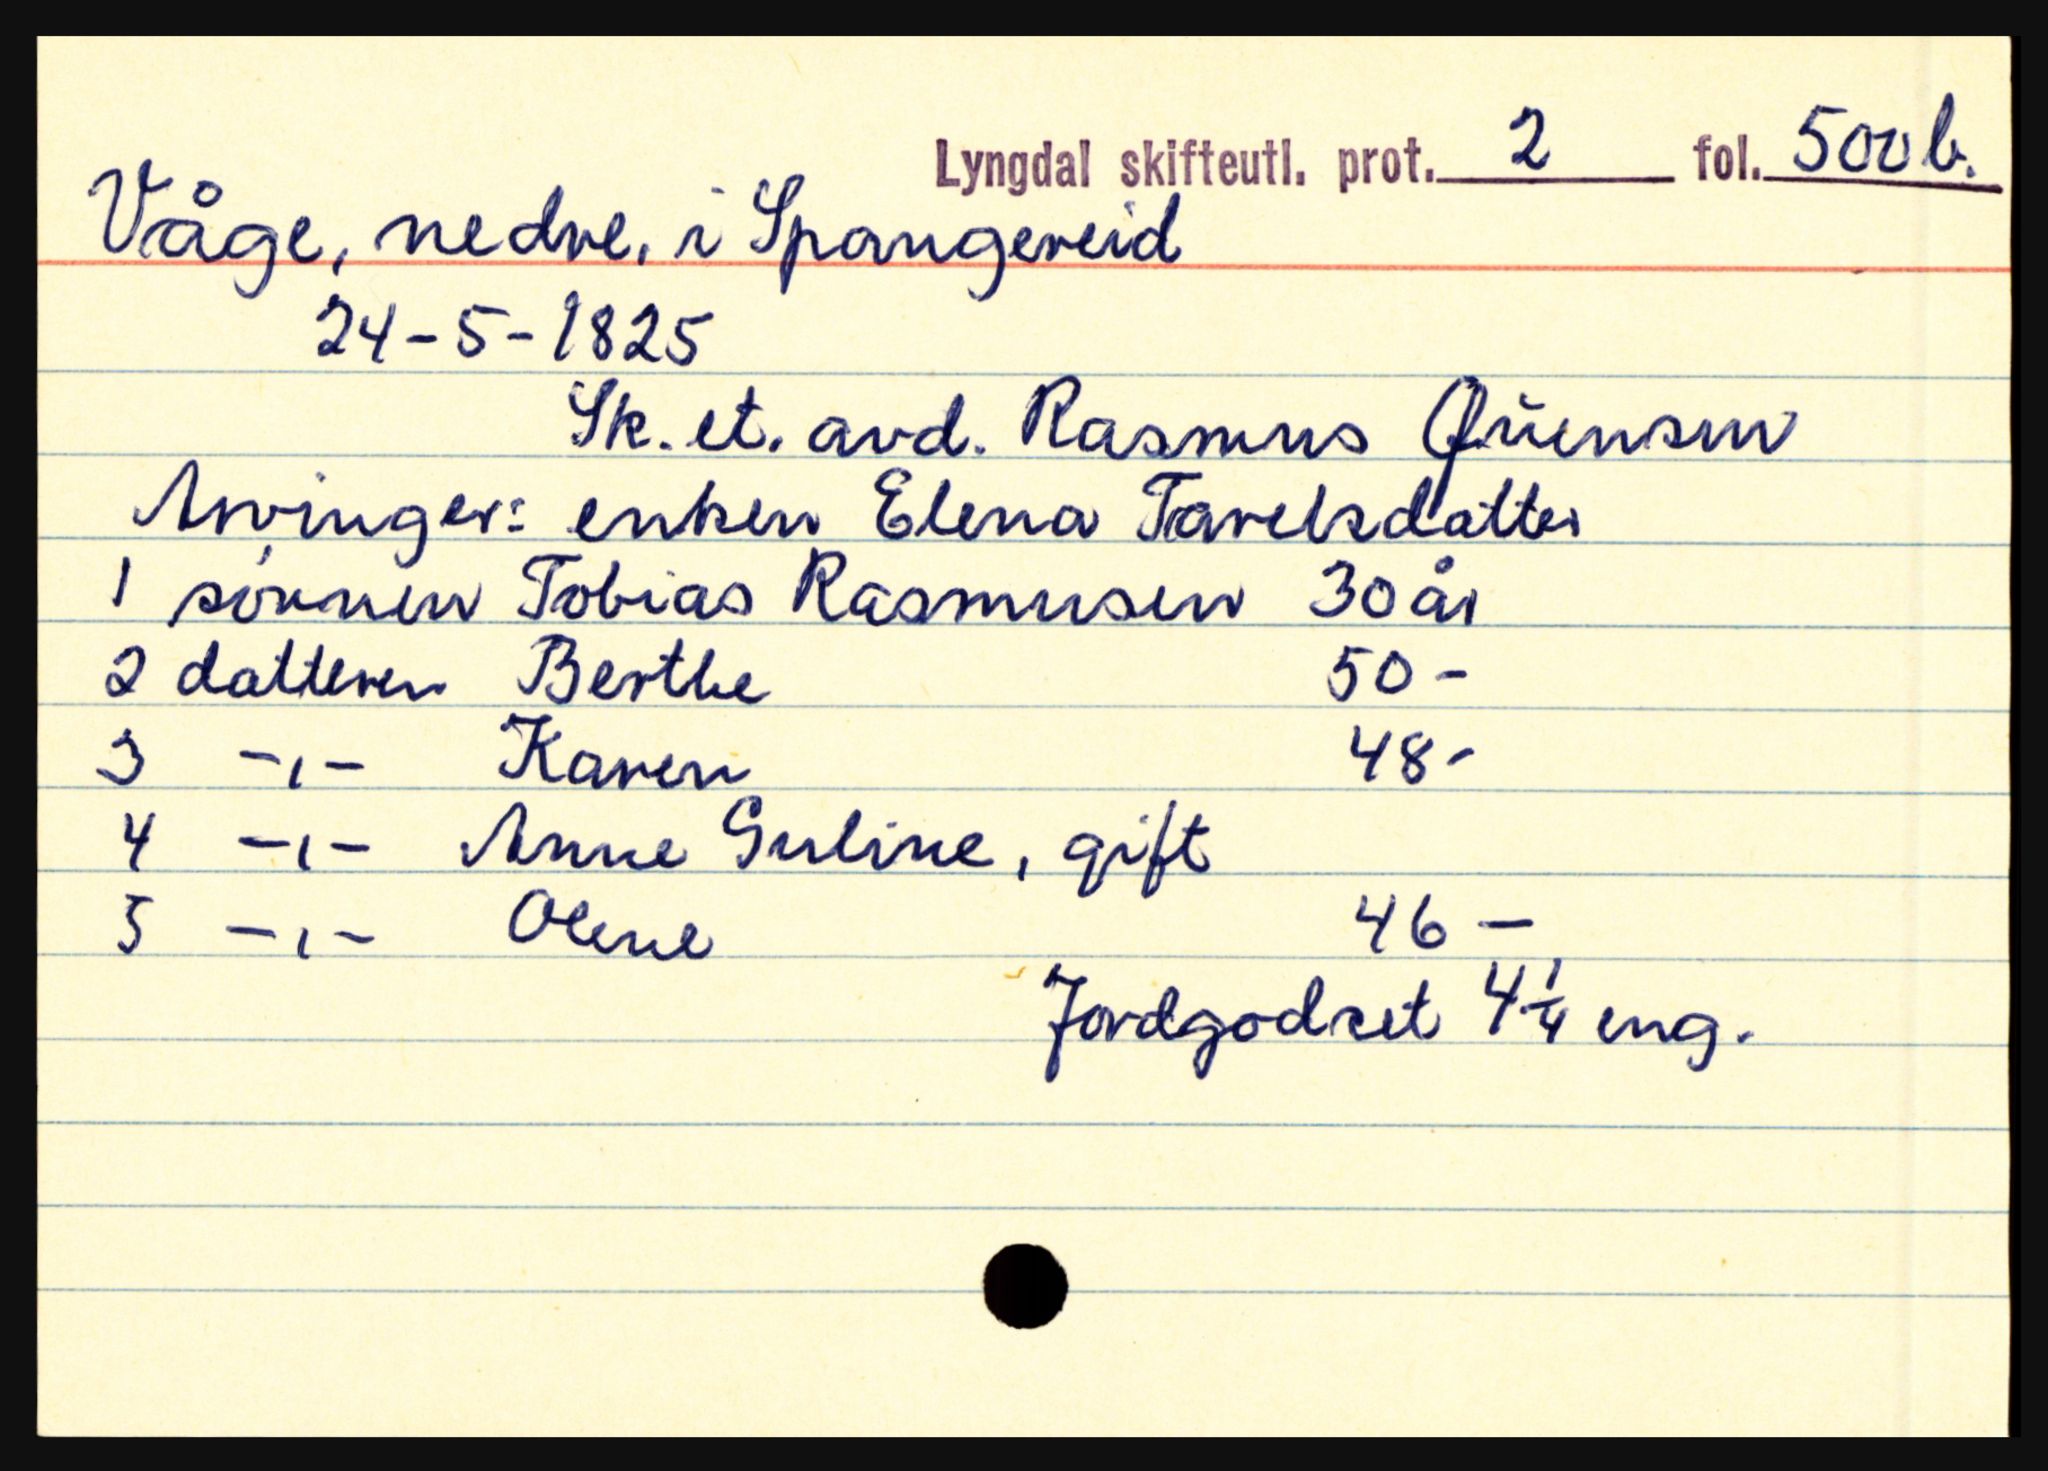 Lyngdal skifteutl. prot. 2 fol. 500b.
Våge, nedre, i Spangereid
24-5-1825
Sk. et. avd. Rasmus Qŭensen
Arvinger: enken Elena Tarelsdatter
1 sønnen Tobias Rasmusen 30 år
2 datteren Berthe 50 -
3 -,- Karen 48 -
4 -,- Anne Guline, gift
5 -,- Olene 46 -
Jordgodset 4 1/4 eng.